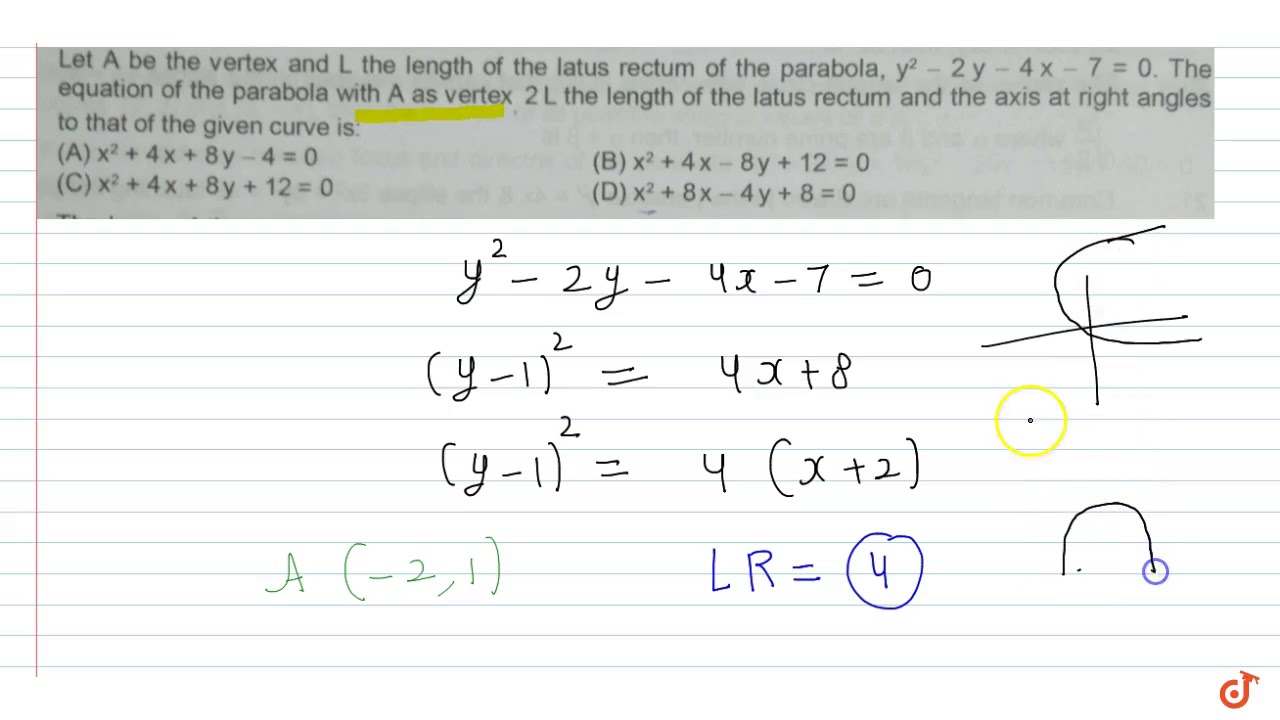 Let A be the vertex and L the length of the latus rectum of the parabola, y² – 2 y – 4 x – 7 = 0. The
equation of the parabola with A as vertex 2 L the length of the latus rectum and the axis at right angles
to that of the given curve is:
(A) x² + 4 x + 8 y – 4 = 0 (B) x² + 4 x – 8 y + 12 = 0
(C) x² + 4 x + 8 y + 12 = 0 (D) x² + 8 x – 4 y + 8 = 0
y² – 2y – 4x – 7 = 0
(y – 1)² = 4x + 8
(y – 1)² = 4 (x + 2)
A (–2, 1) LR = 4